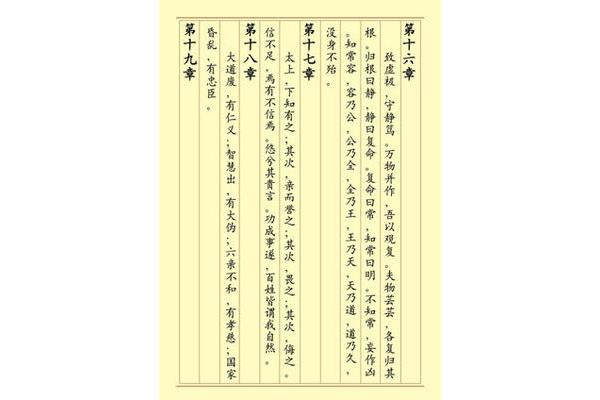 第十六章
致虚极，守静笃。万物并作，吾以观复。夫物芸芸，各复归其
根。归根曰静，静曰复命。复命曰常，知常曰明。不知常，妄作凶
。知常容，容乃公，公乃全，全乃王，王乃天，天乃道，道乃久，
没身不殆。
第十七章
太上，下知有之；其次，亲而誉之；其次，畏之；其次，侮之。
信不足，焉有不信焉。悠兮其贵言。功成事遂，百姓皆谓我自然。
第十八章
大道废，有仁义；智慧出，有大伪；六亲不和，有孝慈；国家
昏乱，有忠臣。
第十九章